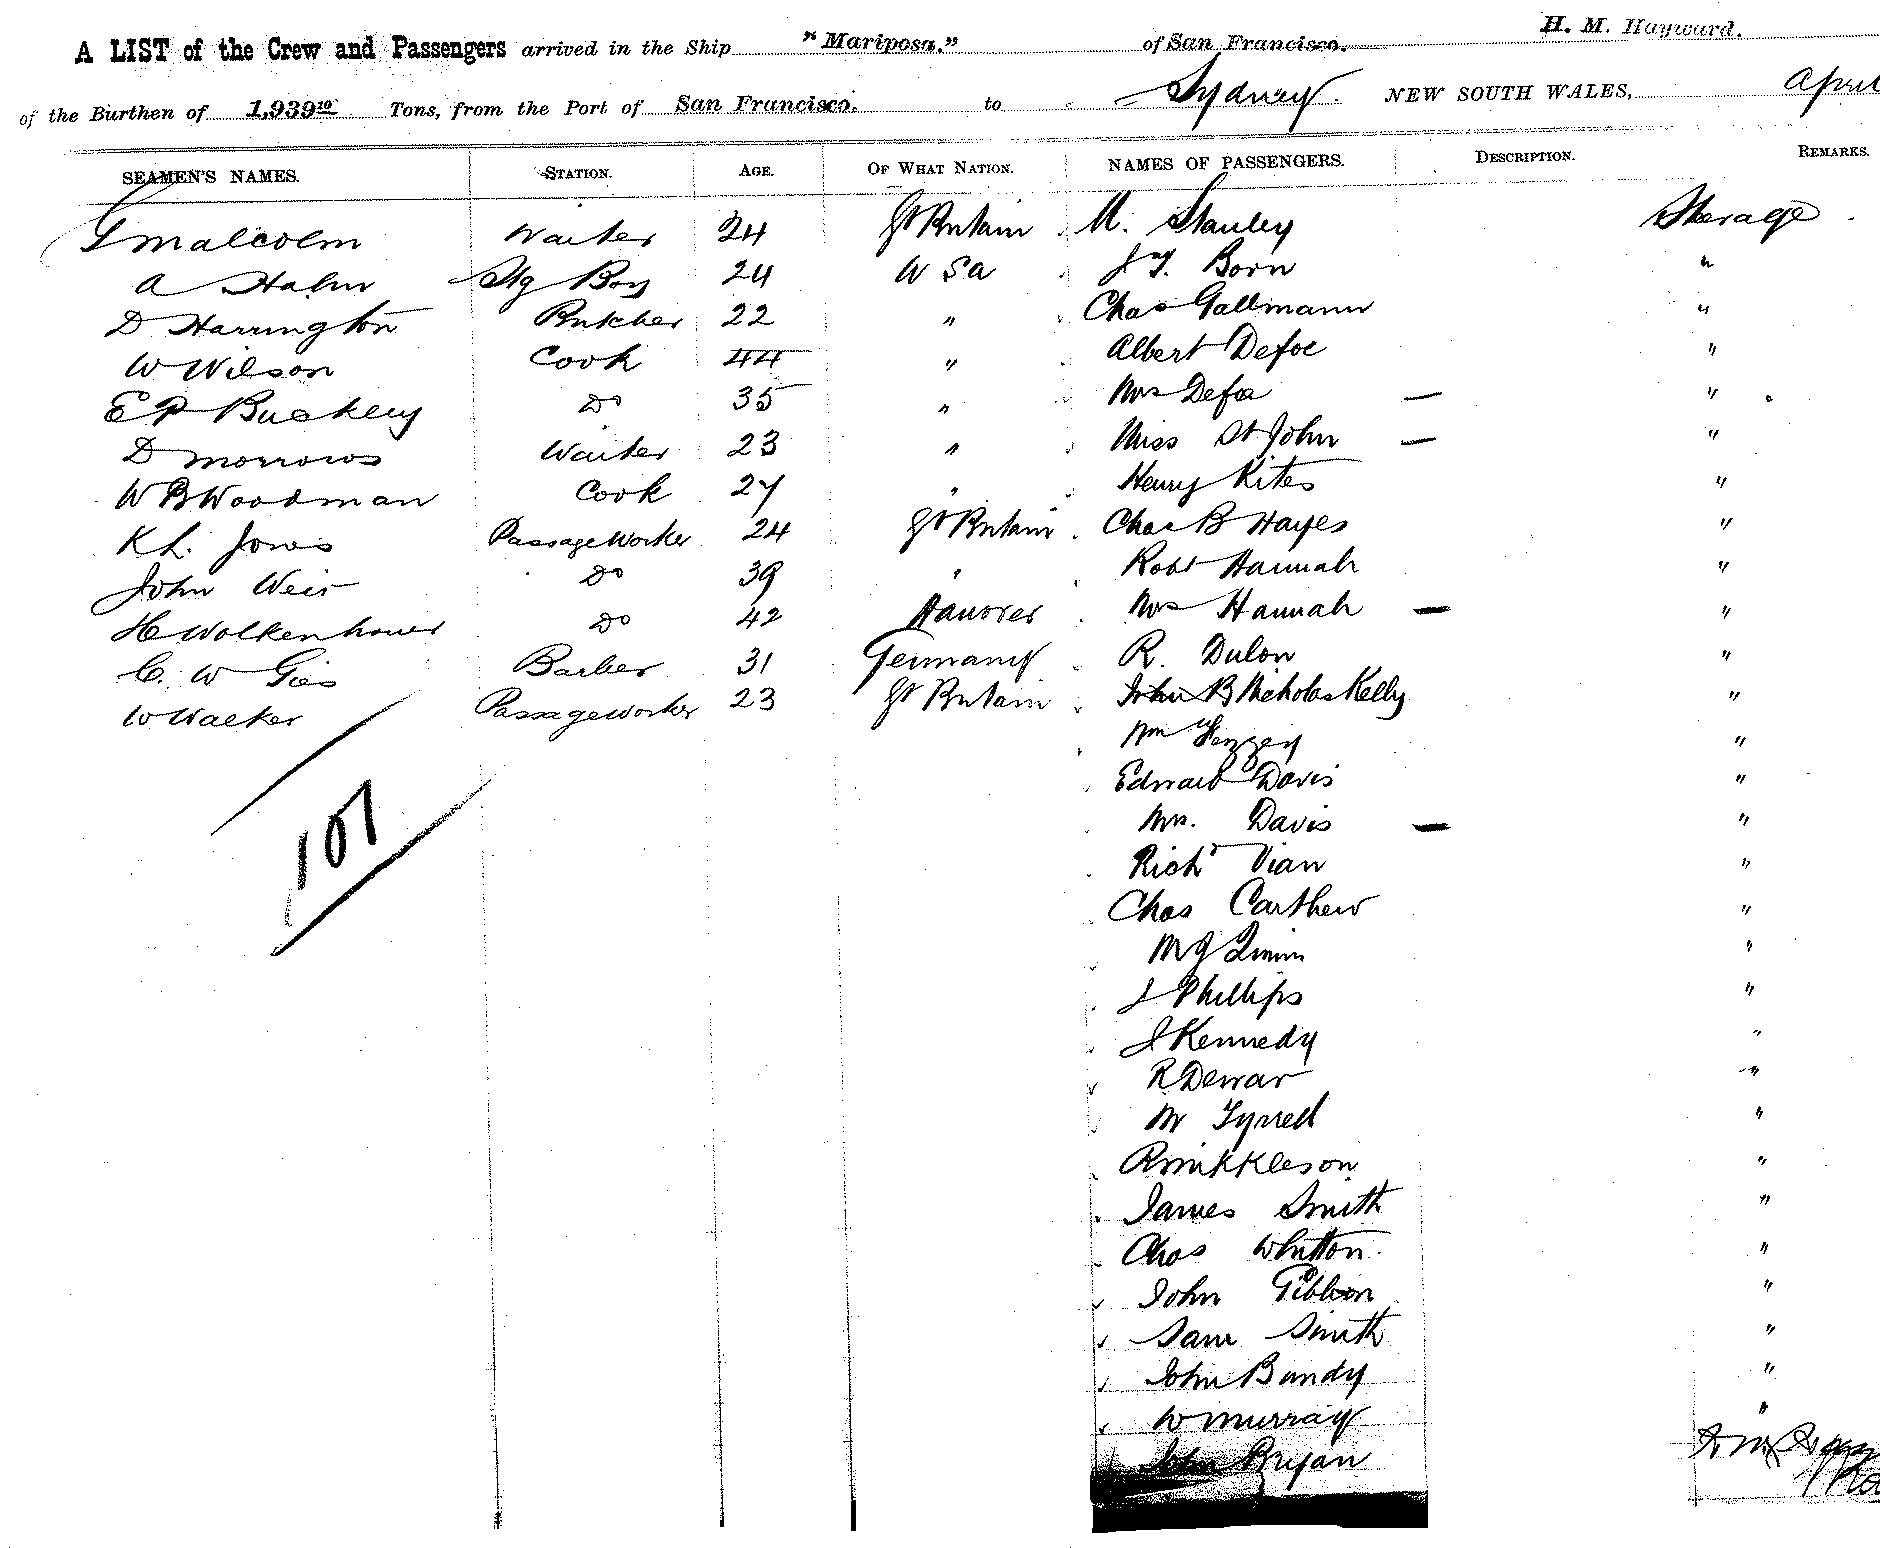 A LIST of the Crew and Passengers arrived in the Ship "Mariposa." of San Francisco. H. M. Hayward.
of the Burthen of 1,939 10 Tons, from the Port of San Francisco. to Sydney. NEW SOUTH WALES, April
SEAMEN'S NAMES. STATION. AGE. OF WHAT NATION. NAMES OF PASSENGERS. DESCRIPTION. REMARKS.
G Malcolm Waiter 24 Gt Britain M. Stanley Steerage
A Hahn Stg Boy 24 U Sa J. Born "
D Harrington Butcher 22 " Chas Gallmann "
W Wilson Cook 44 " Albert Defoe "
E P Buckley Do 35 " Mrs Defoe — "
D Morrows Waiter 23 " Miss St John — "
W B Woodman Cook 27 " Henry Kites "
K L. Jones Passage Worker 24 Gt Britain Chas B Hayes "
John Weir Do 39 " Robt Hannah "
H Wolkenhauer Do 42 Hanover Mrs Hannah — "
C. W Gies Barber 31 Germany R. Dulon "
W Walker Passage Worker 23 Gt Britain John B Nicholas Kelly "
Wm "
Edward Davis "
107
Mrs. Davis — "
Richd Vian "
Chas Carthew "
M J "
J Phillips "
J Kennedy "
R Dewar "
M Tyrrell "
R Mikkleson "
James Smith "
Chas Whitton. "
John Gibbon "
Sam Smith "
John Bandy "
W Murray "
John Bryan